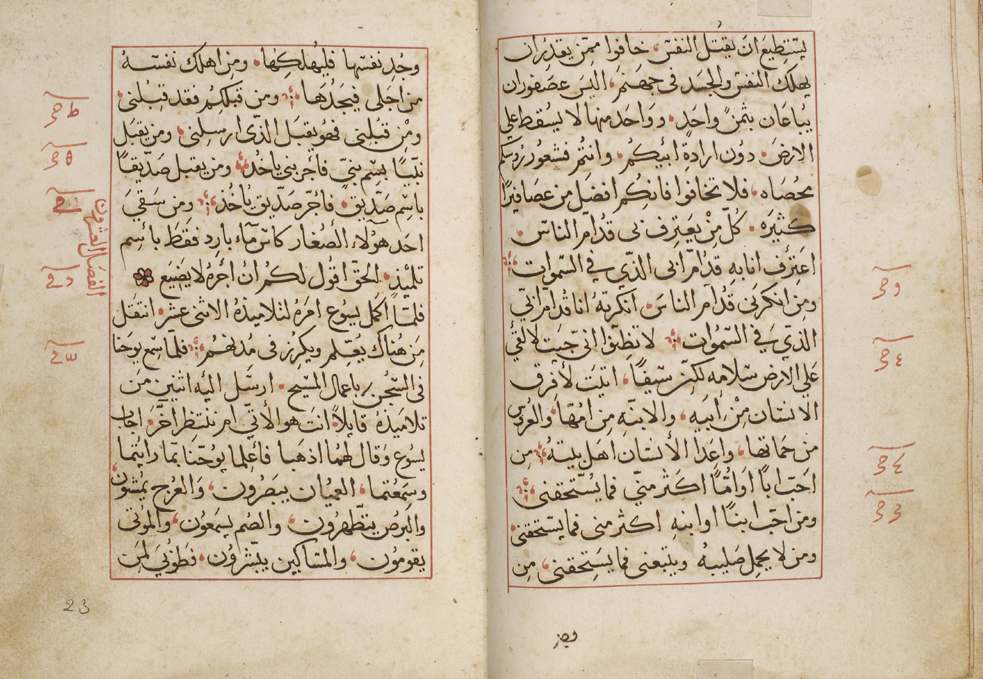 يستطيع ان يقتل النفس خافوا ممن يقدر ان
يهلك النفس والجسد في جهنم اليس عصفوران
يباعان بثمن واحدٍ وواحد منها لا يسقط على
الارض دون ارادة ابيكم وانتم فشعور روسكم
محصاه فلا تخافوا فانكم افضل من عصافيرًا
كثيرة كل من يعترف بي قدام الناس
اعترف انا به قدام ابي الذي في السموات
ومن انكرني قدام الناس انكرته انا قدام ابي
الذي في السموات لا تظنوا اني جيت لالقي
على الارض سلامه لكن سيفًا اتيت لافرق
الانسان من ابيه والابنه من امها والعروس
من حماتها واعدا الانسان اهل بيته من
احب ابًا او امًا اكثر مني فما يستحقني
ومن احب ابنًا او ابنه اكثر مني فما يستحقني
ومن لا يحمل صليبه ويتبعني فما يستحقني من
وجد نفسها فليهلكها ومن اهلك نفسه
من اجلي فيجدها ومن قبلكم فقد قبلني
ومن قبلني فهو يقبل الذي ارسلني ومن يقبل
نبيًا باسم نبي فاجر نبي ياخذ ومن يقبل صديقًا
باسم صديق فاجر صديق ياخذ ومن سقي
احد هولاء الصغار كاس ماء بارد فقط باسم
تلميذ الحق اقول لكم ان اجره لا يضيع
الفصل العشرون
فلما اكمل يسوع امره لتلاميذه الاثني عشر انتقل
من هناك يعلم ويكرز في مدنهم فلما سمع يوحنا
في السجن باعمال المسيح ارسل اليه اثنين من
تلاميذه قايلاً انت هو الاتي ام ننتظر اخر اجاب
يسوع وقال لهما اذهبا فاعلما يوحنا بما رايتما
وسمعتما العميان يبصرون والعرج يمشون
والبرص يتطهرون والصم يسمعون والموتى
يقومون والمساكين يبشرون فطوبي لمن
23